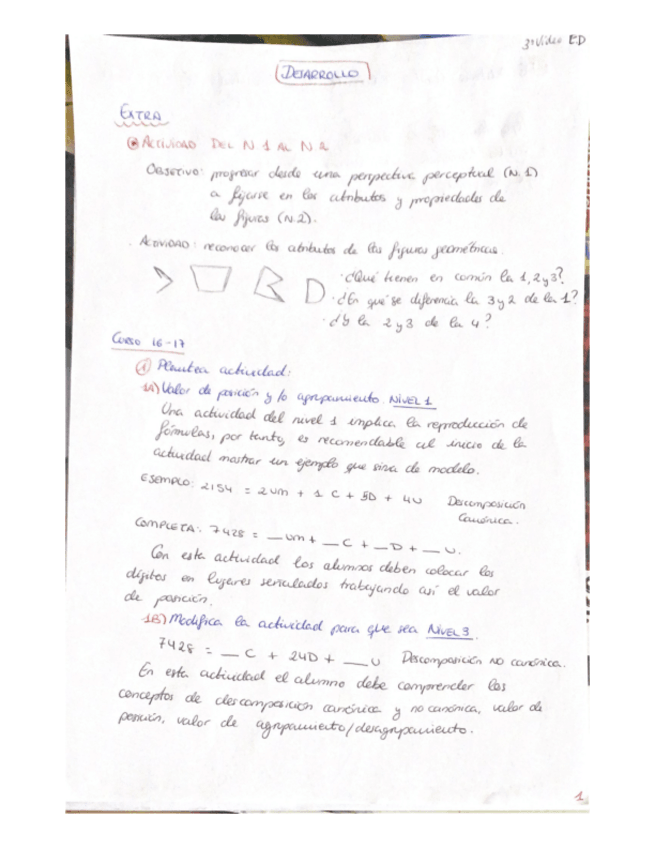 3º Video E.D
DESARROLLO
EXTRA
ACTIVIDAD DEL N 1 AL N 2
OBJETIVO: progresar desde una perspectiva perceptual (N.1)
a fijarse en los atributos y propiedades de
las figuras (N.2).
. ACTIVIDAD: reconocer los atributos de las figuras geométricas.
· ¿Qué tienen en común la 1, 2 y 3?
· ¿En qué se diferencia la 3 y 2 de la 1?
· ¿Y la 2 y 3 de la 4?
CURSO 16-17
1 Plantea actividad:
1A) Valor de posición y/o agrupamiento. NIVEL 1
Una actividad del nivel 1 implica la reproducción de
fórmulas, por tanto, es recomendable al inicio de la
actividad mostrar un ejemplo que sirva de modelo.
EJEMPLO: 2154 = 2 um + 1 C + 5D + 4U Descomposición
Canónica.
COMPLETA: 7428 = __ um + __ C + __ D + __ U.
Con esta actividad los alumnos deben colocar los
dígitos en lugares señalados trabajando así el valor
de posición.
1B) Modifica la actividad para que sea NIVEL 3.
7428 = __ C + 24D + __ U Descomposición no canónica.
En esta actividad el alumno debe comprender los
conceptos de descomposición canónica y no canónica, valor de
posición, valor de agrupamiento/desagrupamiento.
1